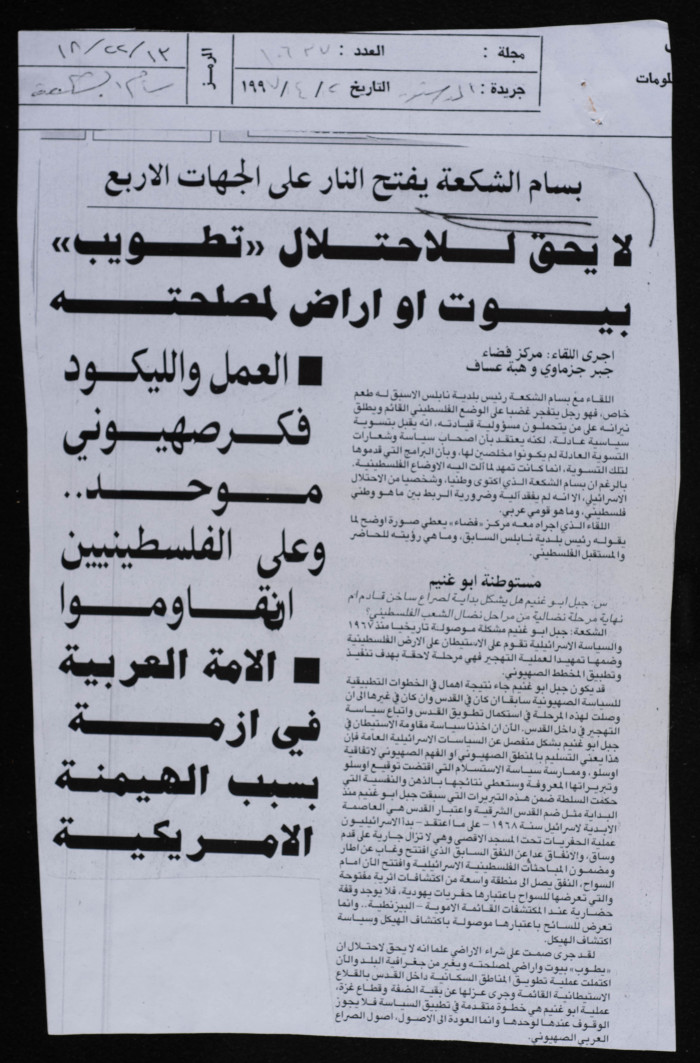 مجلة :
العدد :
الرمز
١٨/٢٢/١٣
لومات
جريدة : الدستور
التاريخ ٢ / ٤ / ١٩٩٧
بسام الشكعة
بسام الشكعة يفتح النار على الجهات الاربع
لا يحق للاحتلال «تطويب»
بيوت او اراض لمصلحته
■ العمل والليكود
فكر صهيوني
موحد..
وعلى الفلسطينيين
ان يقاوموا
■ الامة العربية
في ازمة
بسبب الهيمنة
الامريكية
اجرى اللقاء: مركز فضاء
جبر جزماوي و هبة عساف
اللقاء مع بسام الشكعة رئيس بلدية نابلس الاسبق له طعم
خاص، فهو رجل يتفجر غضبا على الوضع الفلسطيني القائم ويطلق
نيرانه على من يتحملون مسؤولية قيادته، انه يقبل بتسوية
سياسية عادلة، لكنه يعتقد بأن اصحاب سياسة وشعارات
التسوية العادلة لم يكونوا مخلصين لها، وبأن البرامج التي قدموها
لتلك التسوية، انما كانت تمهد لما آلت اليه الاوضاع الفلسطينية.
بالرغم ان بسام الشكعة الذي اكتوى وطنيا، وشخصيا من الاحتلال
الاسرائيلي، الا انه لم يفقد آلية وضرورية الربط بين ما هو وطني
فلسطيني، وما هو قومي عربي.
اللقاء الذي اجراه معه مركز «فضاء» يعطي صورة اوضح لما
يقوله رئيس بلدية نابلس السابق، وما هي رؤيته للحاضر
والمستقبل الفلسطيني.
مستوطنة ابو غنيم
س: جبل ابو غنيم هل يشكل بداية لصراع ساخن قادم ام
نهاية مرحلة نضالية من مراحل نضال الشعب الفلسطيني؟
الشكعة: جبل ابو غنيم مشكلة موصولة تاريخيا منذ ١٩٦٧
والسياسة الاسرائيلية تقوم على الاستيطان على الارض الفلسطينية
وضمها تمهيدا لعملية التهجير فهي مرحلة لاحقة بهدف تنفيذ
وتطبيق المخطط الصهيوني.
قد يكون جبل ابو غنيم جاء نتيجة اهمال في الخطوات التطبيقية
للسياسة الصهيونية سابقا ان كان في القدس وان كان في غيرها الى ان
وصلت لهذه المرحلة في استكمال تطويق القدس واتباع سياسة
التهجير في داخل القدس. الآن ان اخذنا سياسة مقاومة الاستيطان في
جبل ابو غنيم بشكل منفصل عن السياسات الاسرائيلية العامة فإن
هذا يعني التسليم بالمنطق الصهيوني او الفهم الصهيوني لاتفاقية
اوسلو، وممارسة سياسة الاستسلام التي اقتضت توقيع اوسلو
وتبريراتها المعروفة وستعطي نتائجها بالذهن والنفسية التي
حكمت السلطة ضمن هذه التبريرات التي سبقت جبل ابو غنيم منذ
البداية مثل ضم القدس الشرقية واعتبار القدس هي العاصمة
الابدية لاسرائيل سنة ١٩٦٨ - على ما أعتقد - بدأ الاسرائيليون
عملية الحفريات تحت المسجد الاقصى وهي لا تزال جارية على قدم
وساق، والاتفاق عدا عن النفق السابق الذي افتتح وغاب عن اطار
ومضمون المباحثات الفلسطينية الاسرائيلية وافتتح الآن امام
السواح، النفق يصل الى منطقة واسعة من اكتشافات اثرية مفتوحة
والتي تعرضها للسواح باعتبارها حفريات يهودية، فلا يوجد وقفة
حضارية عند المكتشفات القائمة الاموية - البيزنطية.. وانما
تعرض للسائح باعتبارها موصولة باكتشاف الهيكل وسياسة
اكتشاف الهيكل.
لقد جرى صمت على شراء الاراضي علما انه لا يحق لاحتلال ان
«يطوب» بيوت واراضي لمصلحته ويغير من جغرافية البلد والآن
اكتملت عملية تطويق المناطق السكانية داخل القدس بالقلاع
الاستيطانية القائمة وجرى عزلها عن بقية الضفة وقطاع غزة،
عملية ابو غنيم هي خطوة متقدمة في تطبيق السياسة فلا يجوز
الوقوف عندها لوحدها وانما العودة الى الاصول، اصول الصراع
العربي الصهيوني.